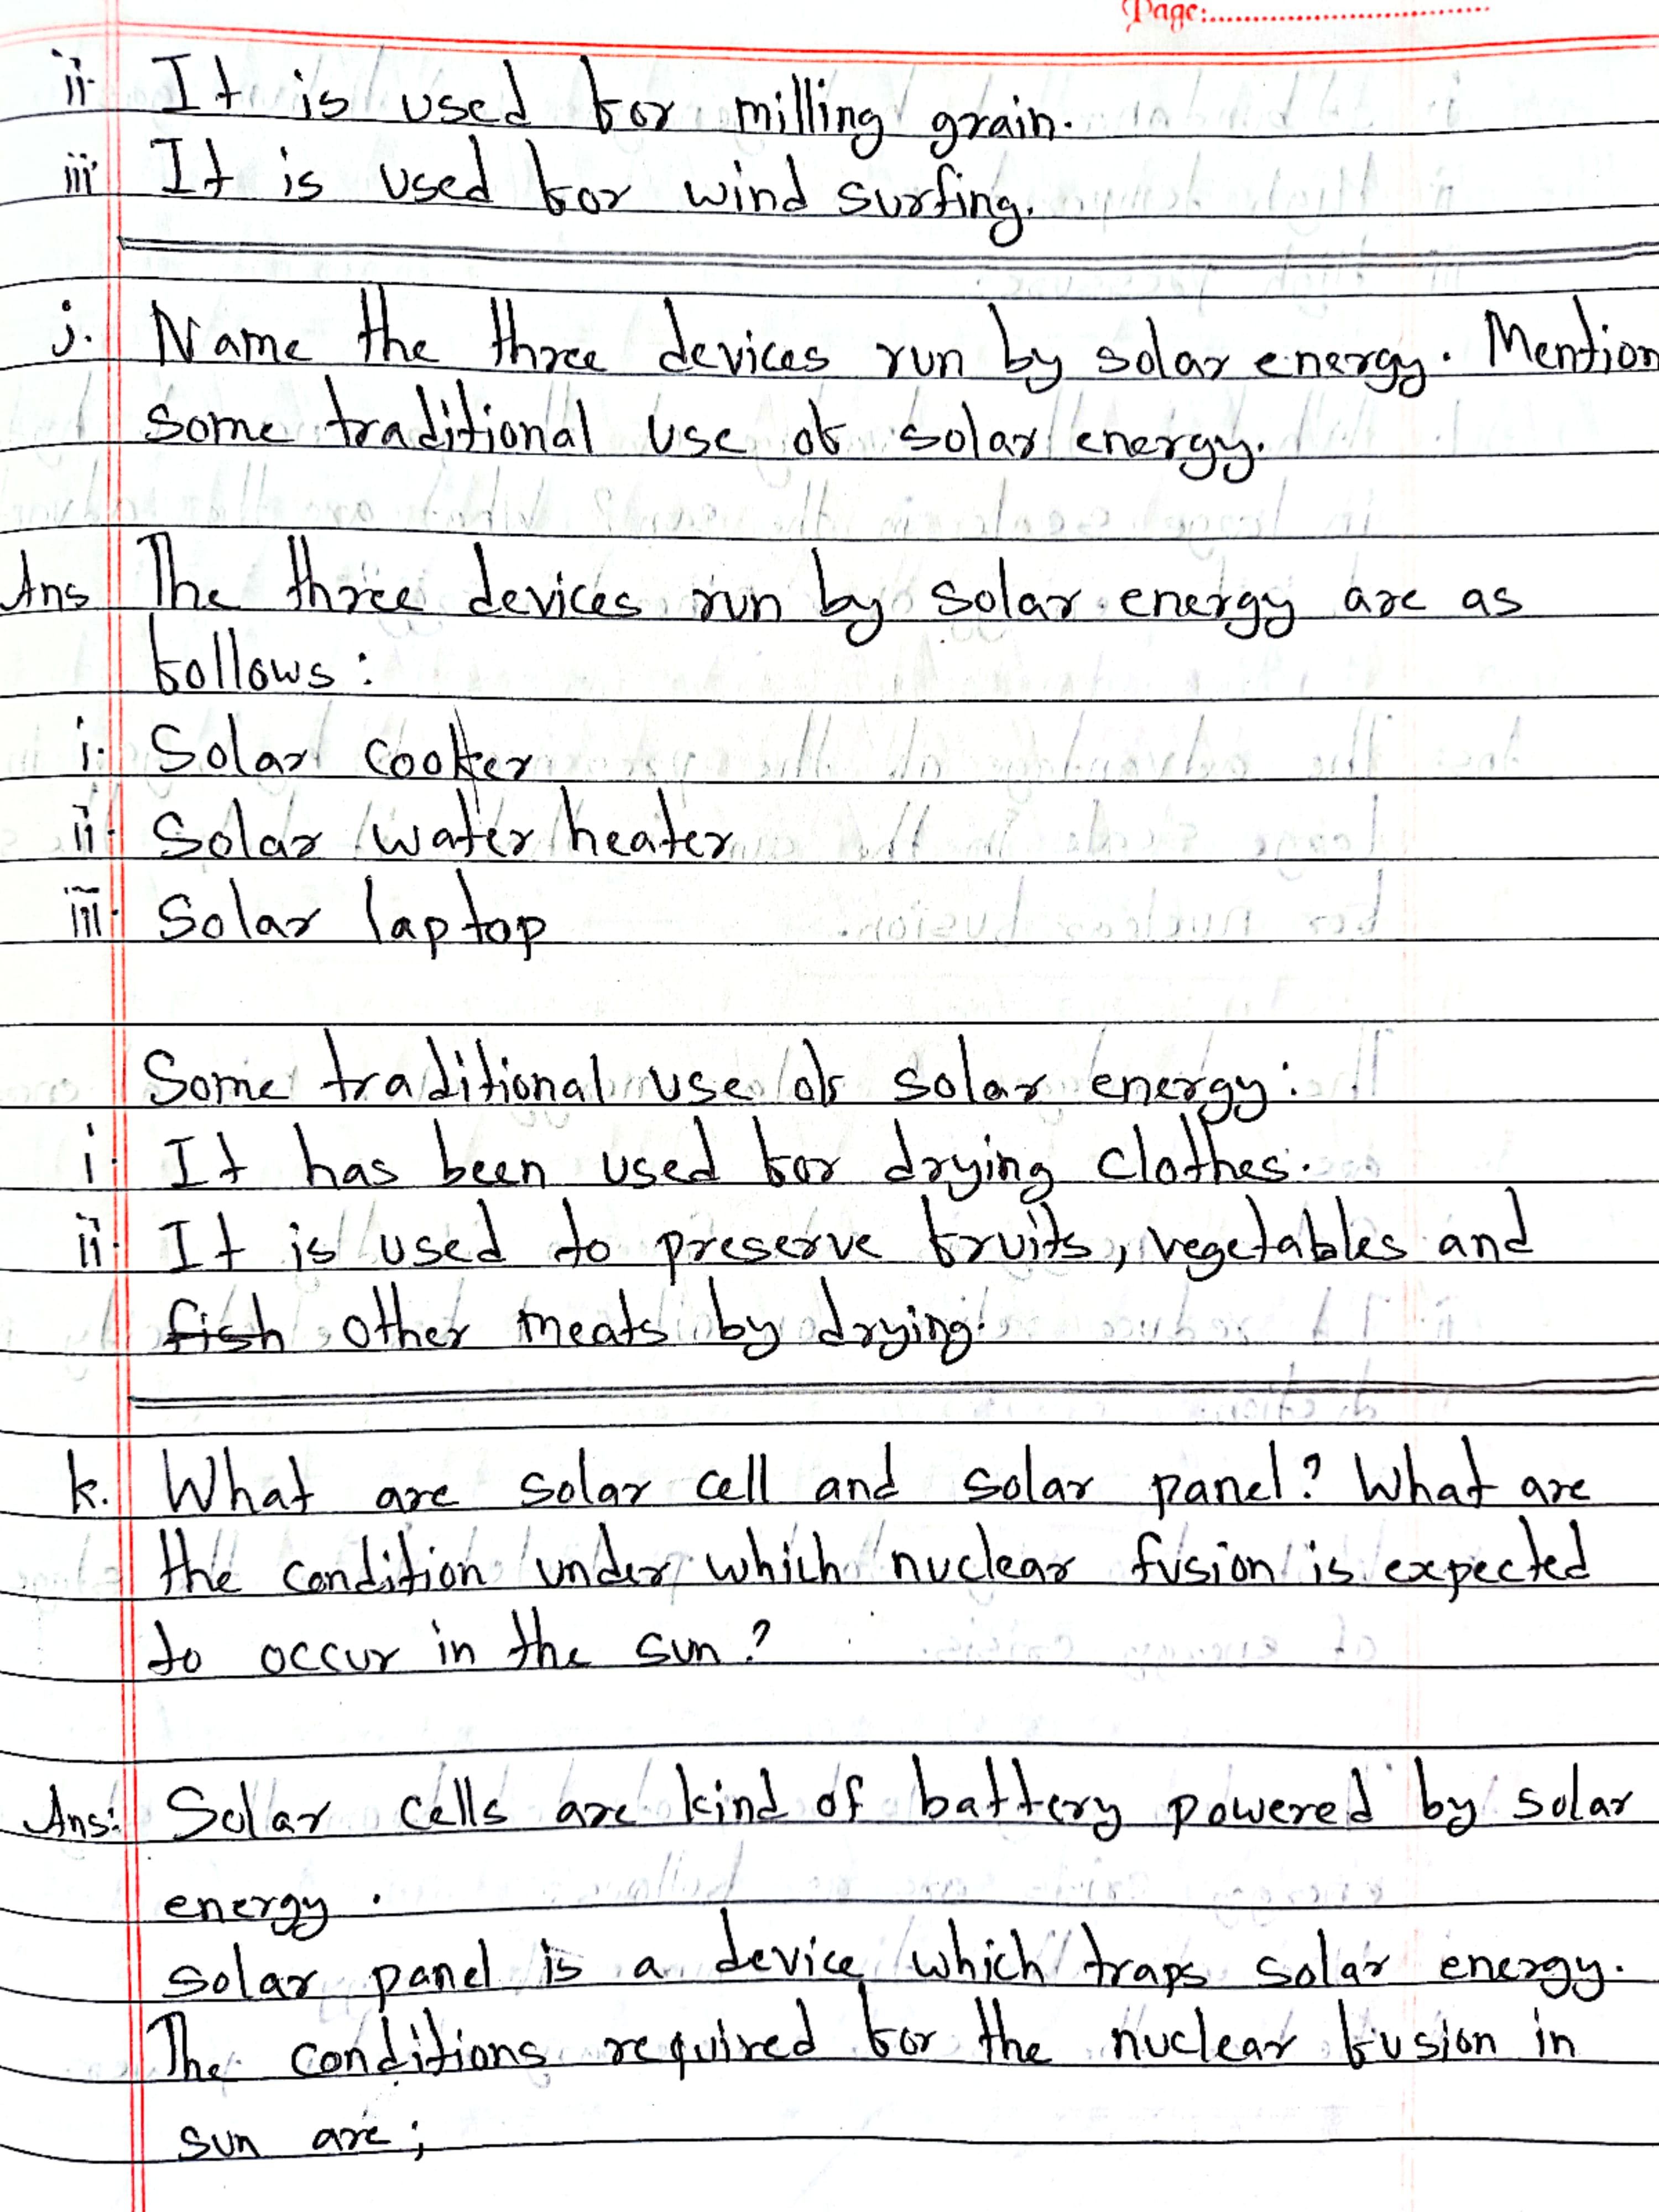 Page:
ii. It is used for milling grain.
iii. It is used for wind surfing.
j. Name the three devices run by solar energy. Mention
some traditional use of solar energy.
Ans The three devices run by solar energy are as
follows:
i. Solar cooker
ii. Solar water heater
iii. Solar laptop
Some traditional use of solar energy:
i. It has been used for drying clothes.
ii. It is used to preserve fruits, vegetables and
fish other meats by drying.
k. What are solar cell and solar panel? What are
the condition under which nuclear fusion is expected
to occur in the sun?
Ans: Solar cells are kind of battery powered by solar
energy.
solar panel is a device which traps solar energy.
The conditions required for the nuclear fusion in
sun are;